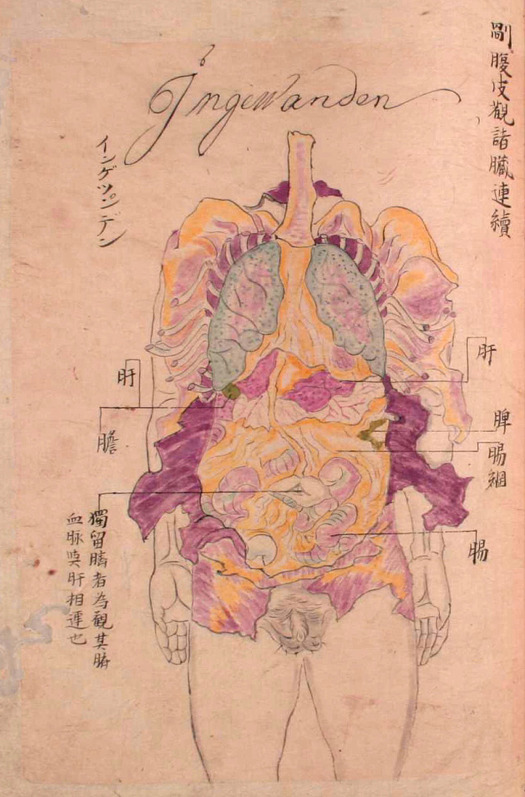 Ingewanden
剮腹皮觀諸臓連續
インゲワンデン
肝
肝
膽
脾
腸網
腸
獨留臍者為觀其臍
血脉與肝相連也